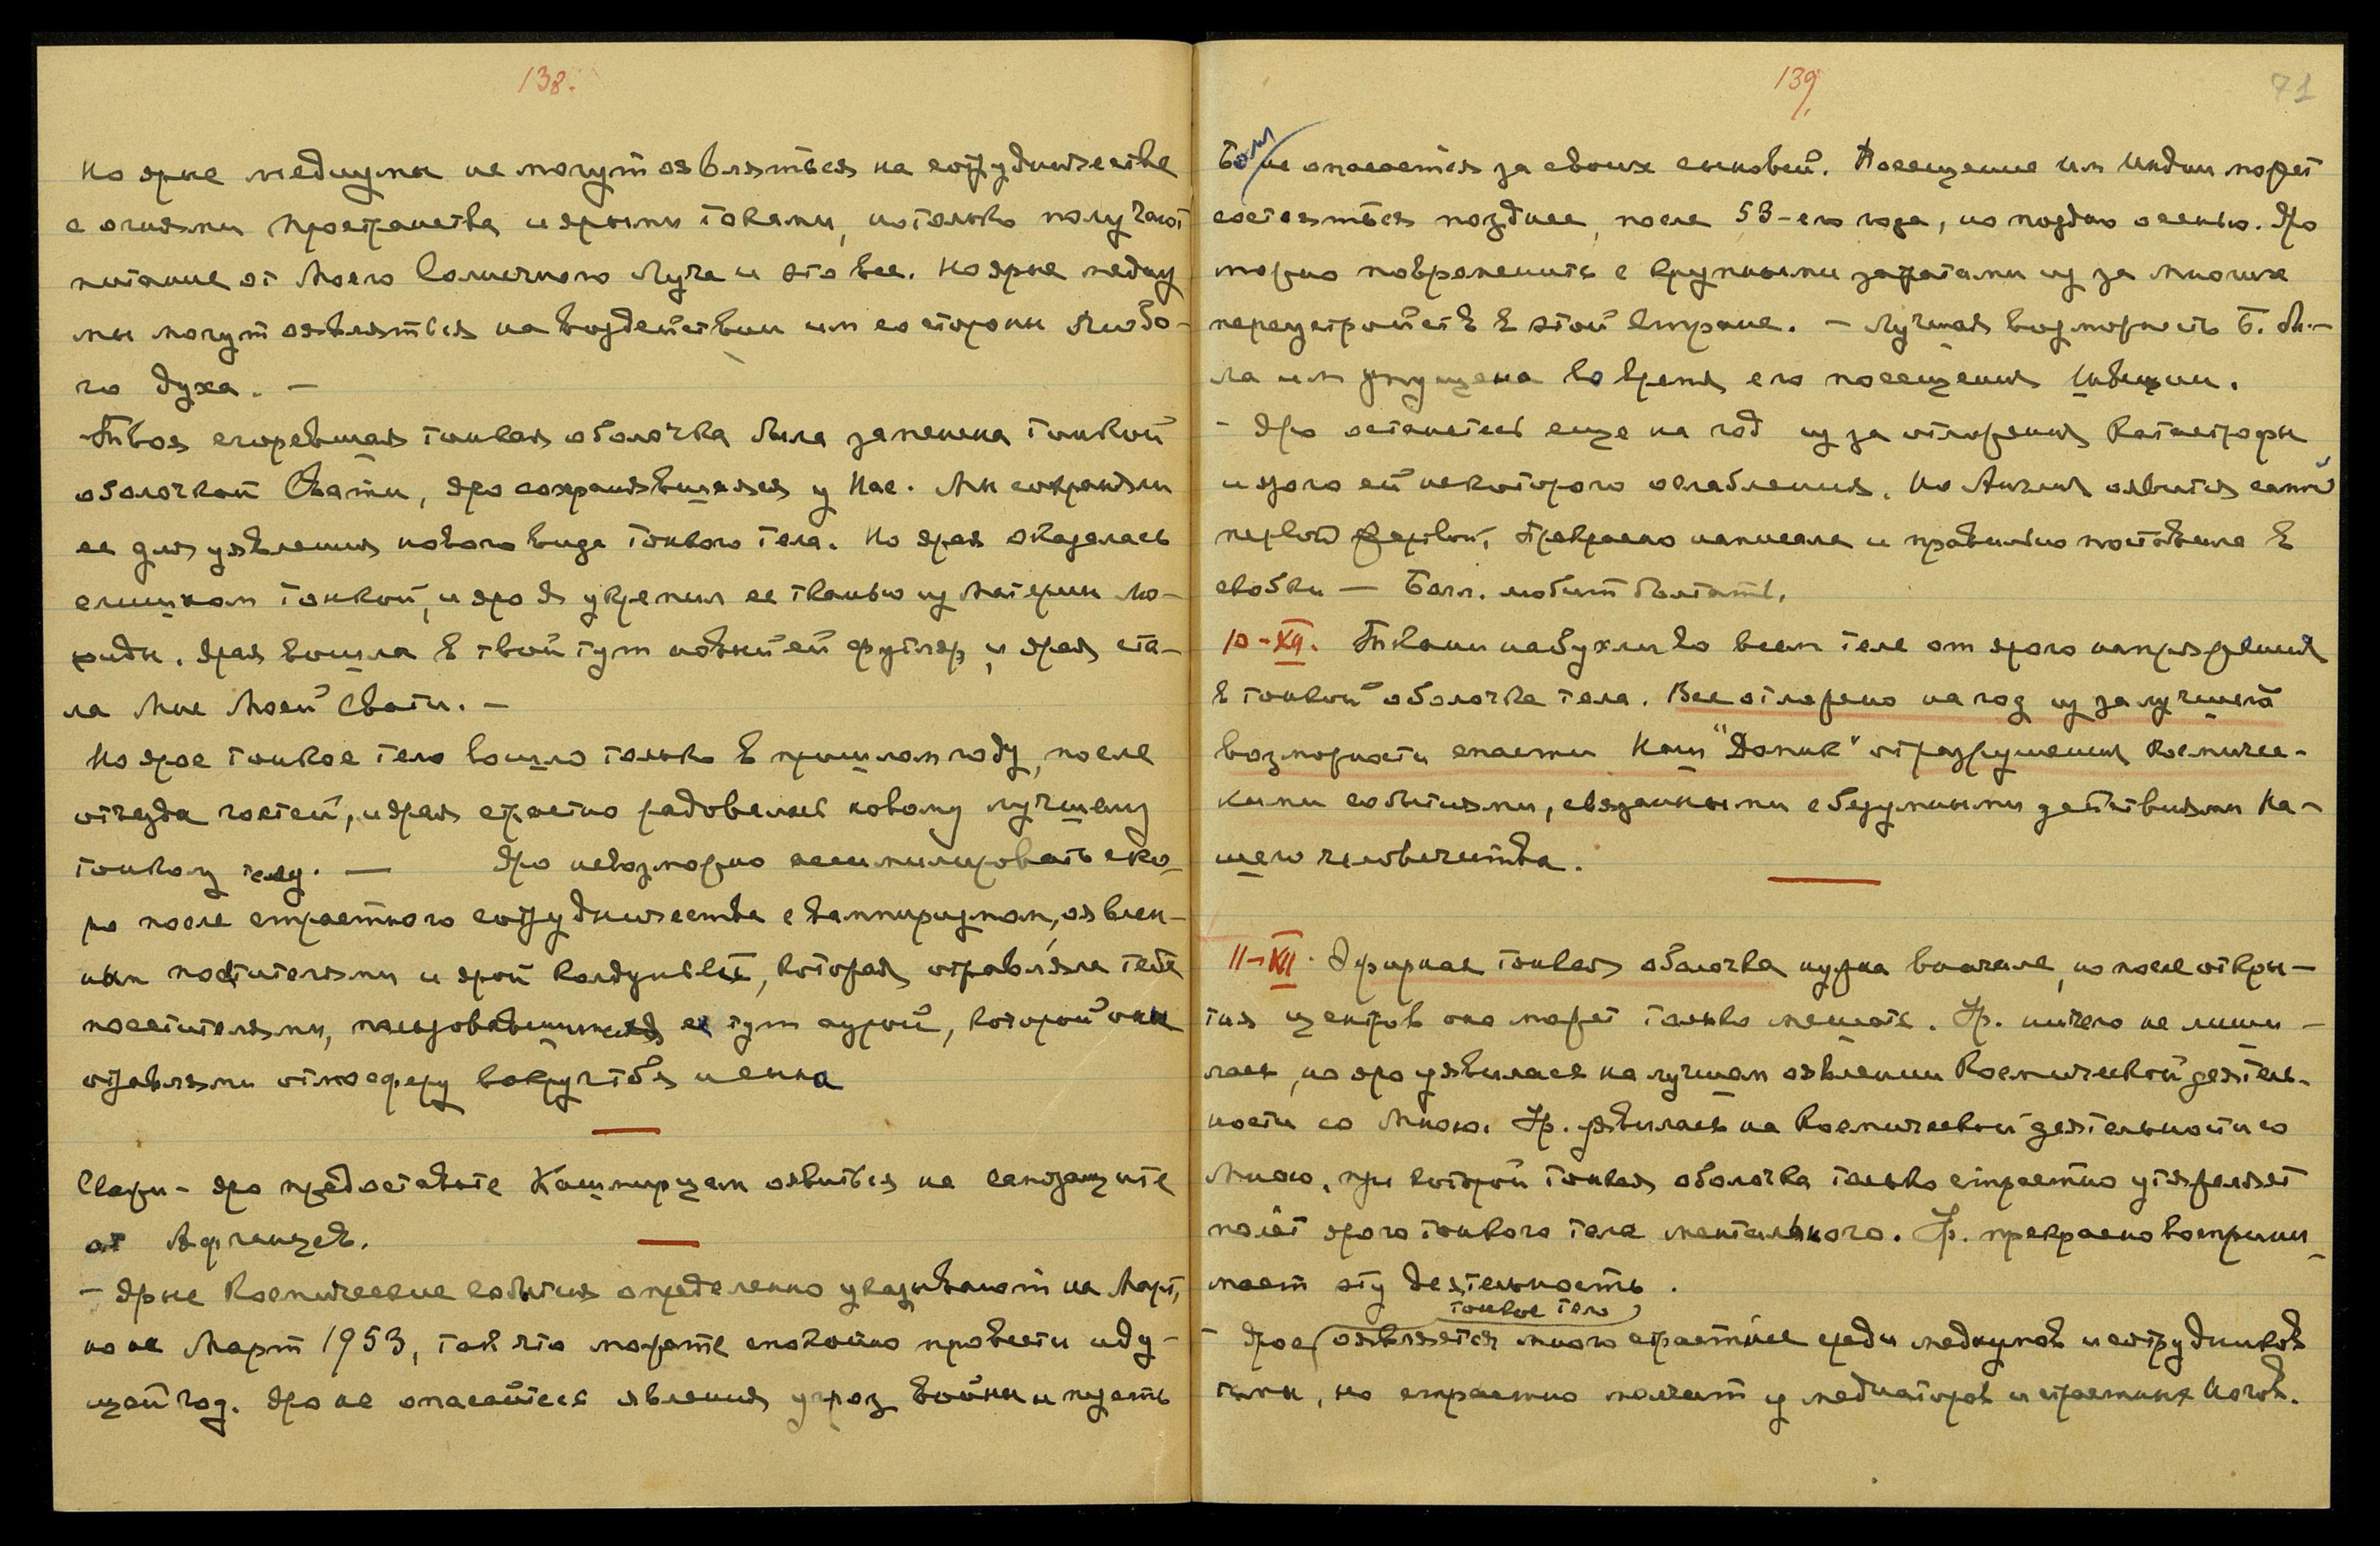 138.
Но ярые медиумы не могут являться на сотрудничестве
с огнями пространства и ярыми токами, но только получают
питание от Моего Солнечного Луча и это все. Но ярые медиу
мы могут являться на воздействии им со стороны любо-
го духа. —
Твоя сгоревшая тонкая оболочка была заменена тонкой
оболочкой Свати, яро сохранявшаяся у Нас. Мы сохраняли
ее для уявления нового вида тонкого тела. Но ярая оказалась
слишком тонкой, и яро Я укрепил ее тканью из Материи Лю-
риды. Ярая вошла в твой тут новый ей футляр и ярая ста-
ла Мне Моей Свати. —
Но ярое тонкое тело вошло только в прошлом году, после
отъезда гостей, и ярая страстно радовалась новому лучшему
тонкому телу. — Яро невозможно ассимилировать ско-
ро после страстного сотрудничества с вампиризмом, явлен-
ным посетителями и ярой колдуньей, которая отравляла тебя
посетителями, тут аурой, которой они
отравляли атмосферу вокруг тебя и сына
Скажи – яро предоставьте Кашмирцам явиться на самозащите
от Афганцев.
– Ярые Космические события определенно указывают на Март,
но не Март 1953, так что можете спокойно провести иду-
щей год. Яро не опасайтесь явления угроз войны и пусть
139.
71
Болл не опасается за своих сыновей. Посещение им Индии может
состояться позднее, после 53-его года, но поздно осенью. Яро
можно повременить с крупными затратами из за многих
переустройств в этой стране. – Лучшая возможность Б. бы-
ла им упущена во время его посещения Индии.
– Яро останетесь еще на год из за отложения Катастрофы
и ярого ей некоторого ослабления. Но Англия явится самой
первой жертвой. Прекрасно написала и правильно поставила в
скобки — Болл. любит болтать.
10–XII. Ткани набухли во всем теле от ярого напряжения
в тонкой оболочке тела. Все отложено на год из за лучшей
возможности спасти Наш "Домик" от разрушения Космичес-
кими событиями, связанными с безумными действиями на-
шего человечества.
11–XII. Эфирная тонкая оболочка нужна вначале, но после откры-
тия центров она может только мешать. Ур. ничего не лиши-
лась, но яро уявилась на лучшем явлении Космической деятель-
ности со Мною. Ур. уявилась на Космической деятельности со
Мною, при которой тонкая оболочка только страстно утяжеляет
полёт ярого тонкого тела ментального. Ур. прекрасно восприни-
мает эту деятельность.
тонкое тело
– Ярое является много страстнее среди медиумов и сотрудников
тьмы, но страстно молчит у медиаторов и страстных Йогов.